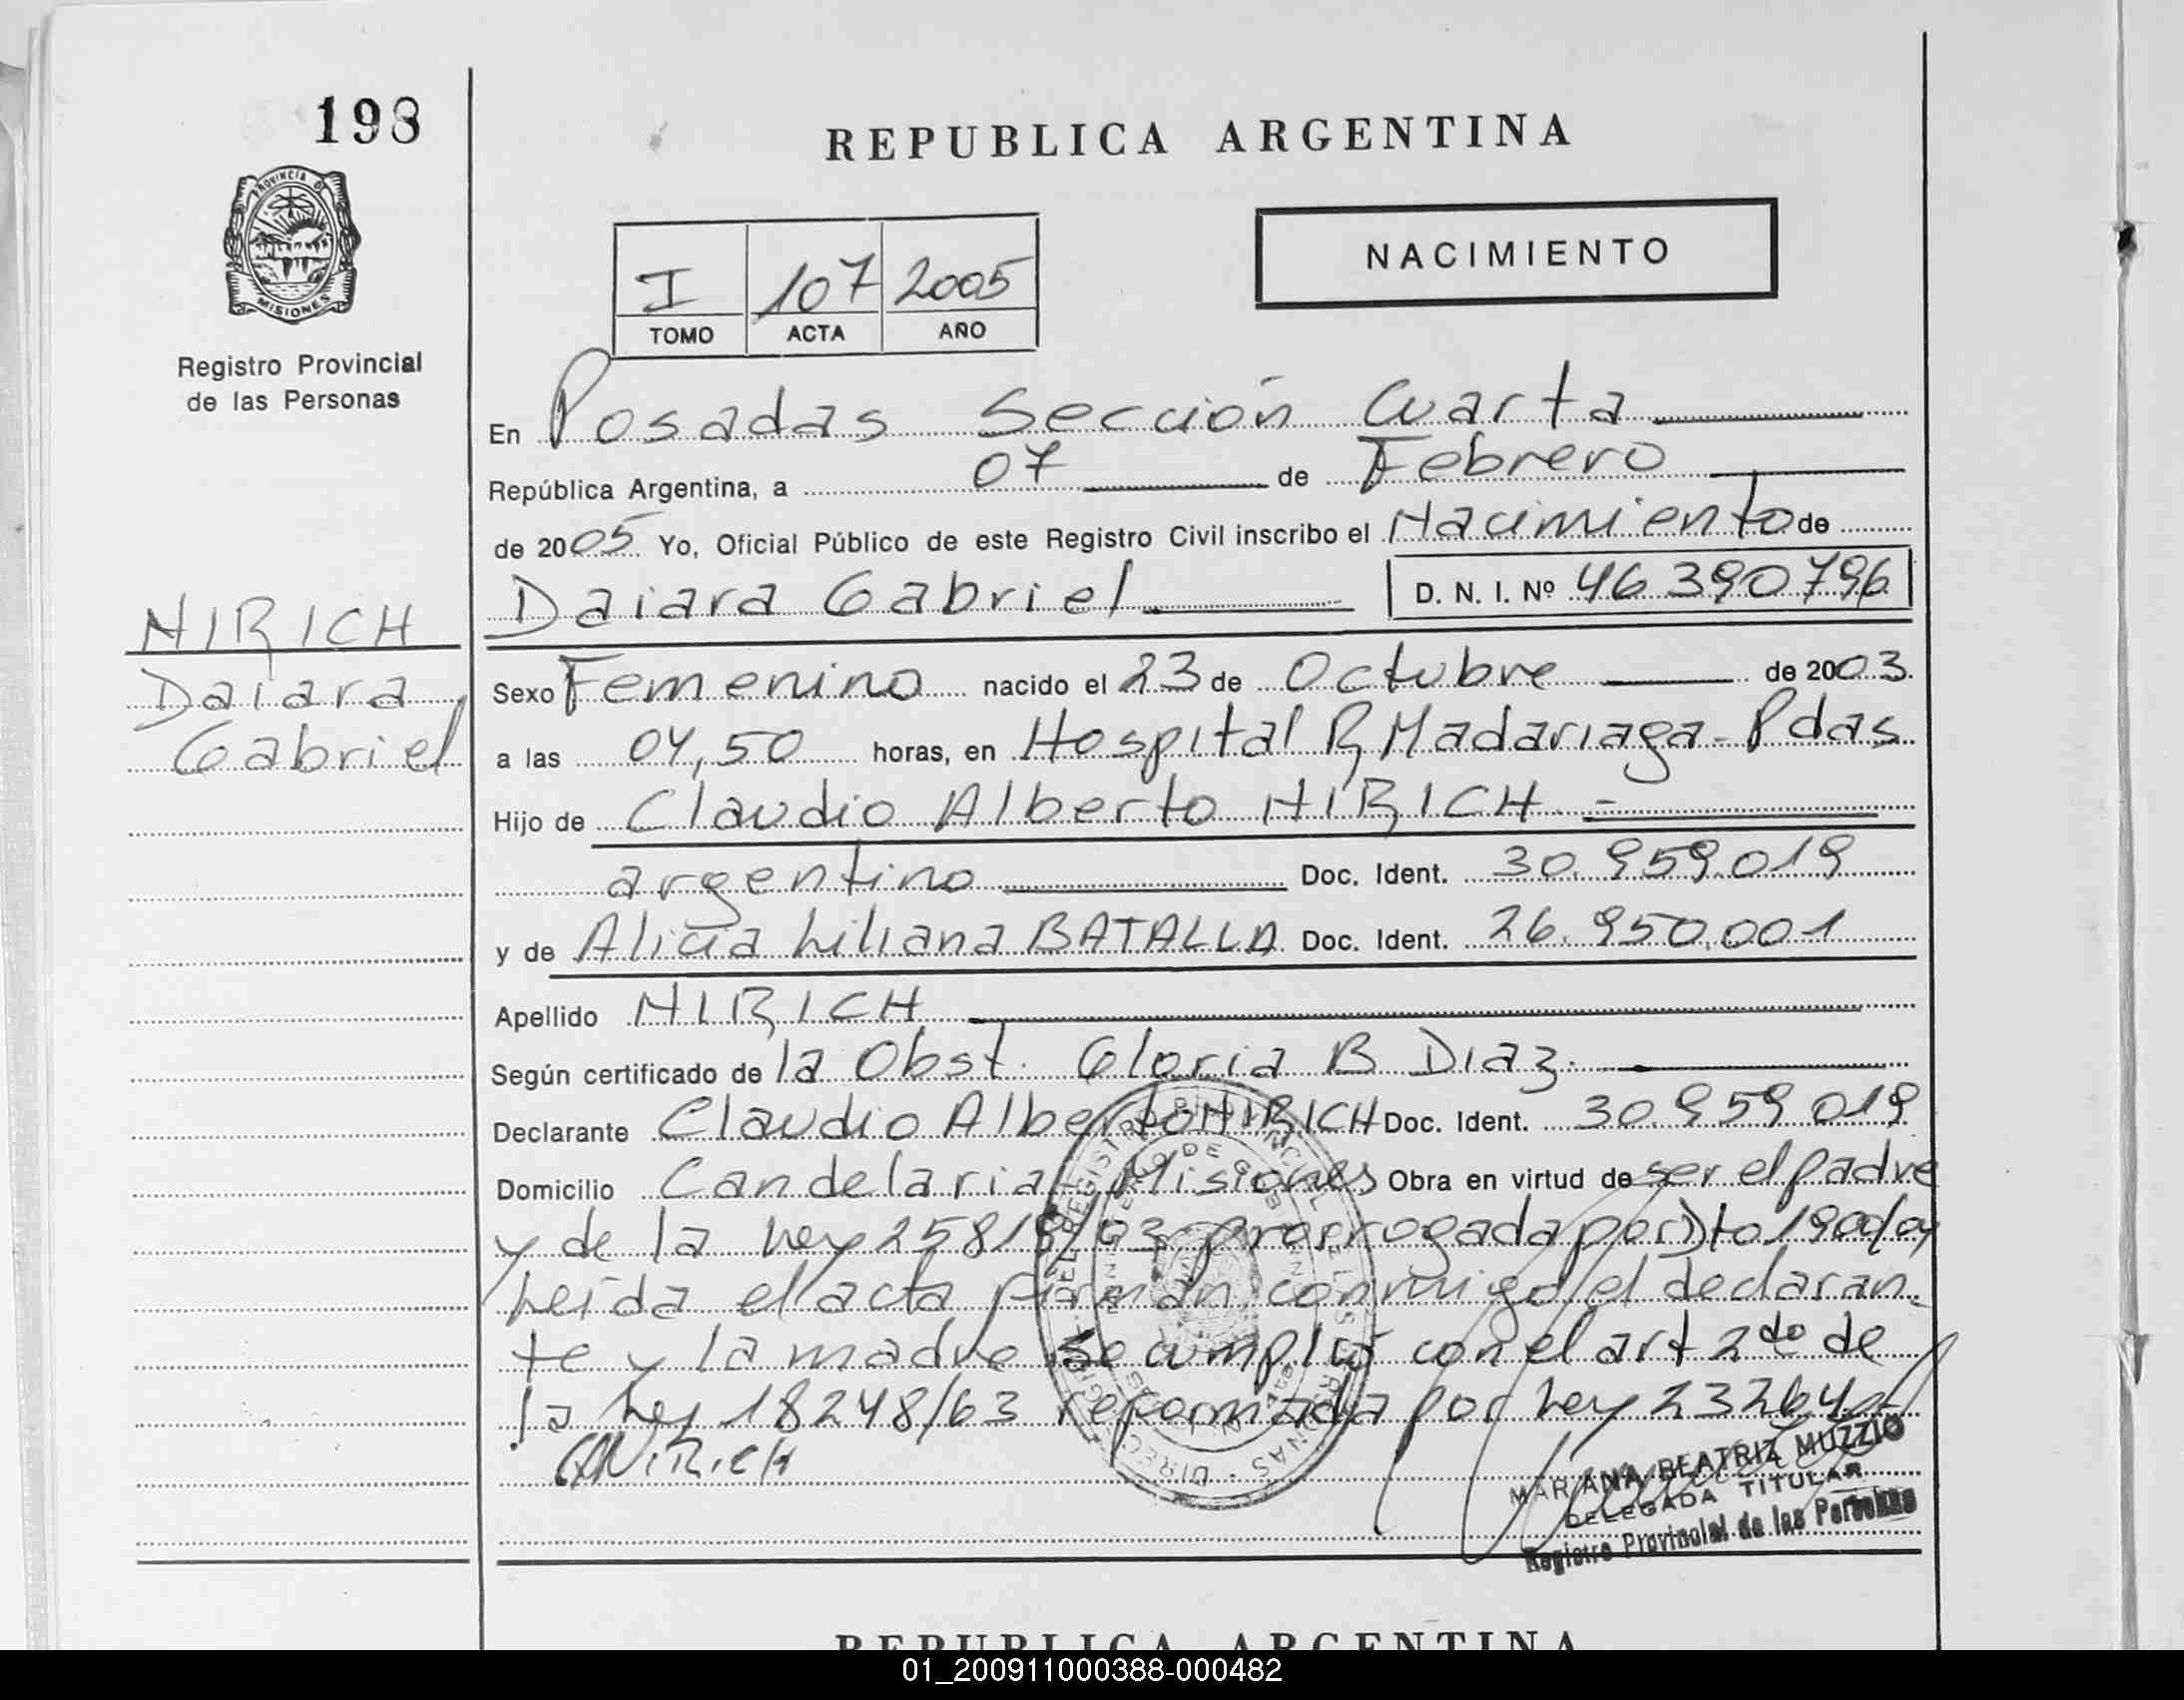 198
PROVINCIA D
MISIONES
Registro Provincial
de las Personas
NIRICH
Daiara
Gabriel
REPUBLICA ARGENTINA
NACIMIENTO
I 107 2005
TOMO ACTA AÑO
En Posadas Sección Cuarta
República Argentina, a 07 de Febrero
de 2005 Yo, Oficial Público de este Registro Civil inscribo el Nacimiento de
Daiara Gabriel D. N. I. Nº 46.390.796
Sexo Femenino nacido el 23 de Octubre de 2003.
a las 04,50 horas, en Hospital R Madariaga - Pdas
Hijo de Claudio Alberto NIRICH. -
argentino Doc. Ident. 30.959.019
y de Alicia Liliana BATALLA Doc. Ident. 26.950.001
Apellido NIRICH
Según certificado de la Obst. Gloria B Diaz.
Declarante Claudio Alberto NIRICH Doc. Ident. 30.959.019
Domicilio Candelaria Misiones Obra en virtud de ser el padre
y de la Ley 25818/03 prorrogada por Dto 1900/04
Leída el acta firman conmigo el declaran
te y la madre Se cumplió con el art 2do de
la Ley 18248/63 reformada por Ley 23264
CANIRICH
MARIANA BEATRIZ MUZZIO
DELEGADA TITULAR
Registro Provincial de las Personas
REPUBLICA ARGENTINA
01_200911000388-000482